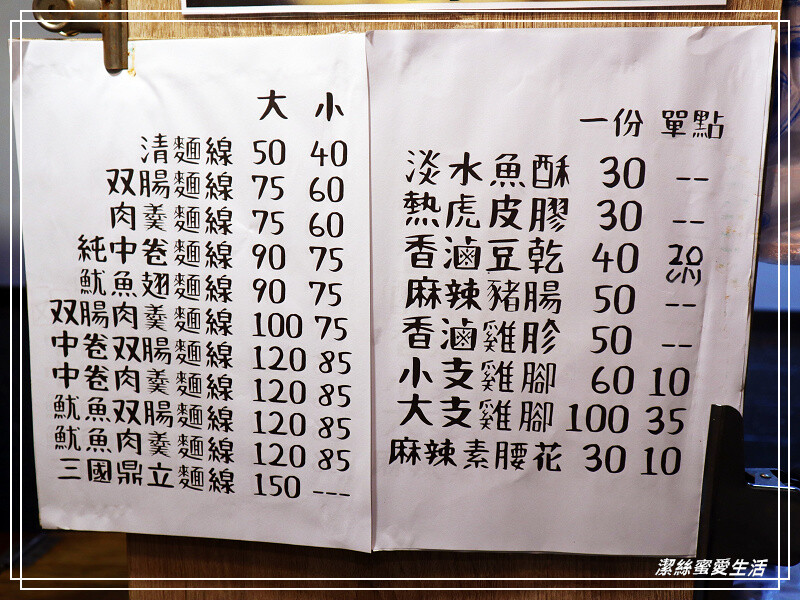 大 小
清麵線 50 40
双腸麵線 75 60
肉羹麵線 75 60
純中卷麵線 90 75
魷魚翅麵線 90 75
双腸肉羹麵線 100 75
中卷双腸麵線 120 85
中卷肉羹麵線 120 85
魷魚双腸麵線 120 85
魷魚肉羹麵線 120 85
三國鼎立麵線 150 ---
一份 單點
淡水魚酥 30 --
熱虎皮膠 30 --
香滷豆乾 40 20(小)
麻辣豬腸 50 --
香滷雞胗 50 --
小支雞腳 60 10
大支雞腳 100 35
麻辣素腰花 30 10
潔絲蜜愛生活